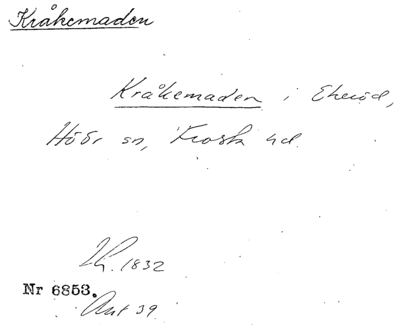 Kråkemaden
Kråkemaden i Ekeröd,
Höör sn, Frosta hd.
1832
Nr 6853.
Ant 39.